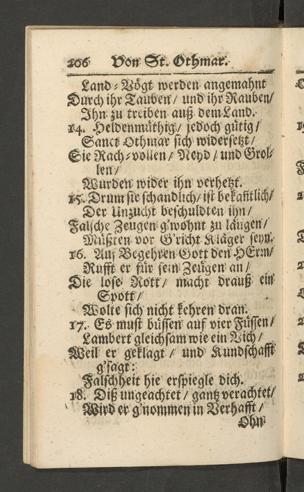 206 Von St. Othmar.
Land-Vögt werden angemahnt
Durch ihr Tauben/ und ihr Rauben/
Ihn zu treiben auß dem Land.
14. Heldenmüthig/ jedoch gütig/
Sanct Othmar sich widersetzt/
Sie Rach-vollen/ Neyd/ und Grol-
len/
Wurden wider ihn verhetzt.
15. Drum sie schandlich/ ist bekañtlich/
Der Unzucht beschuldten ihn/
Falsche Zeugen g'wohnt zu läugen/
Müßten vor G'richt Kläger seyn.
16. Auf Begehren Gott den HErrn/
Rufft er für sein Zeügen an/
Die lose Rott/ macht drauß ein
Spott/
Wolte sich nicht kehren dran.
17. Es must büssen auf vier Füssen/
Lambert gleichsam wie ein Vich/
Weil er geklagt/ und Kundschafft
g'sagt:
Falschheit hie erspiegle dich.
18. Diß ungeachtet/ gantz verachtet/
Wird er g'nommen in Verhafft/
Ohn